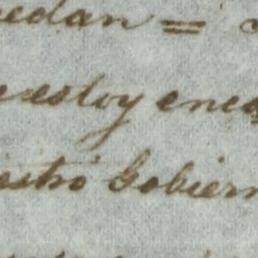 edan =
estoy enca
estro Gobiern